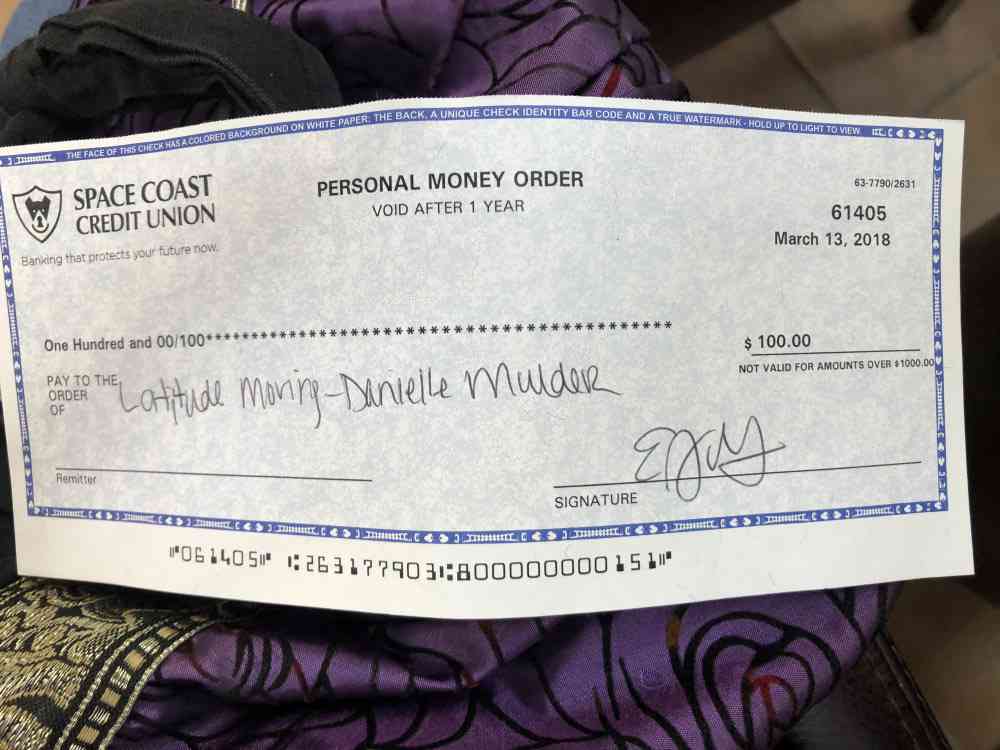 THE FACE OF THIS CHECK HAS A COLORED BACKGROUND ON WHITE PAPER; THE BACK, A UNIQUE CHECK IDENTITY BAR CODE AND A TRUE WATERMARK - HOLD UP TO LIGHT TO VIEW
SPACE COAST
CREDIT UNION
Banking that protects your future now.
PERSONAL MONEY ORDER
VOID AFTER 1 YEAR
63-7790/2631
61405
March 13, 2018
One Hundred and 00/100****************************************************
$ 100.00
NOT VALID FOR AMOUNTS OVER $1000.00
PAY TO THE
ORDER
OF
Latitude Moving-Danielle Mulder
Remitter
SIGNATURE
⑈061405⑈ ⑆263177903⑆800000000151⑈